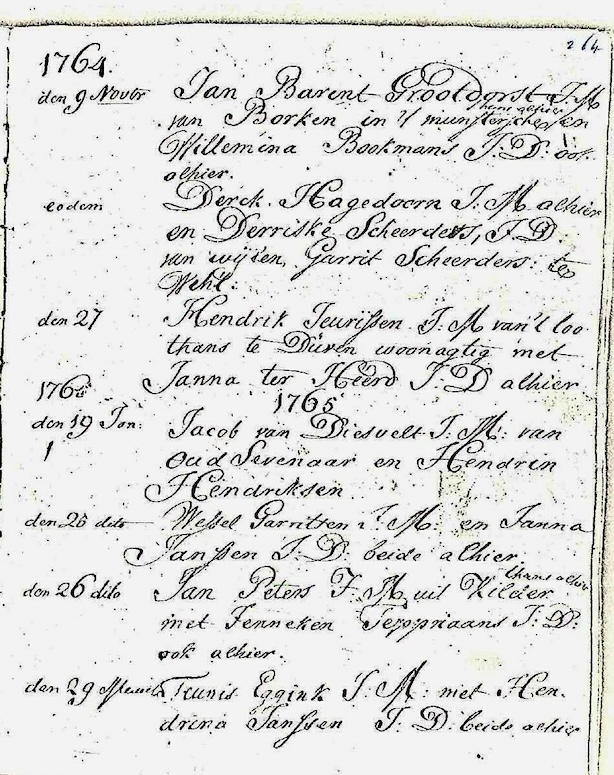 264
1764.
den 9 Novbr Jan Barent Grootdorst J.M
van Borken in 't munstersche thans alhier en
Willemina Bookmans J.D: ook
alhier.
eodem Derck Hagedoorn J.M alhier
en Derriske Scheerders, J.D.
van wijlen, Garrit Scheerders: te
Wehl.
den 27 Hendrik Jeurissen J.M van 't loo
thans te Duven woonagtig met
Janna ter Heerd J.D alhier
1765
1765
den 19 Jan: Jacob van Diesvelt J.M: van
1 oud Sevenaar en Hendrin
Hendriksen
den 26 dito Wessel Garritsen J.M: en Janna
Janssen J.D: beide alhier
den 26 dito Jan Peters J.M uit Kilder thans alhier
met Jenneken J:D:
ook alhier.
den 29 Teunis Eggink J.M: met Hen-
drina Janssen J.D: beide alhier